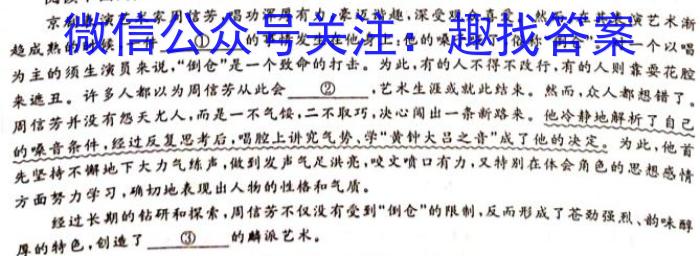 京剧表演艺术家周信芳,唱功浑厚有力,豪迈
微信公众号关注:趣找答案
趋成熟的时候,
为主的须生演员来说,“倒仓”是一个致命的打击。为此,有的人不得不改行,有的人则靠耍花腔
来遮丑。许多人都以为周信芳从此会②,艺术生涯或就此结束。然而,众人都想错了,
周信芳并没有怨天尤人,而是一不气馁,二不取巧,决心闯出一条新路来。他冷静地解析了自己
的嗓音条件,经过反复思考后,唱腔上讲究气势、学“黄钟大吕之音”成了他的决定。为此,他首
先坚持不懈地下大力气练声,做到发声气足洪亮,咬文喷口有力,又特别在体会角色的思想感情
方面努力学习,确切地表现出人物的性格和气质。
经过长期的钻研和探索,周信芳不仅没有受到“倒仓”的限制,反而形成了苍劲强烈、韵味醇
厚的特色,创造了③的麟派艺术。